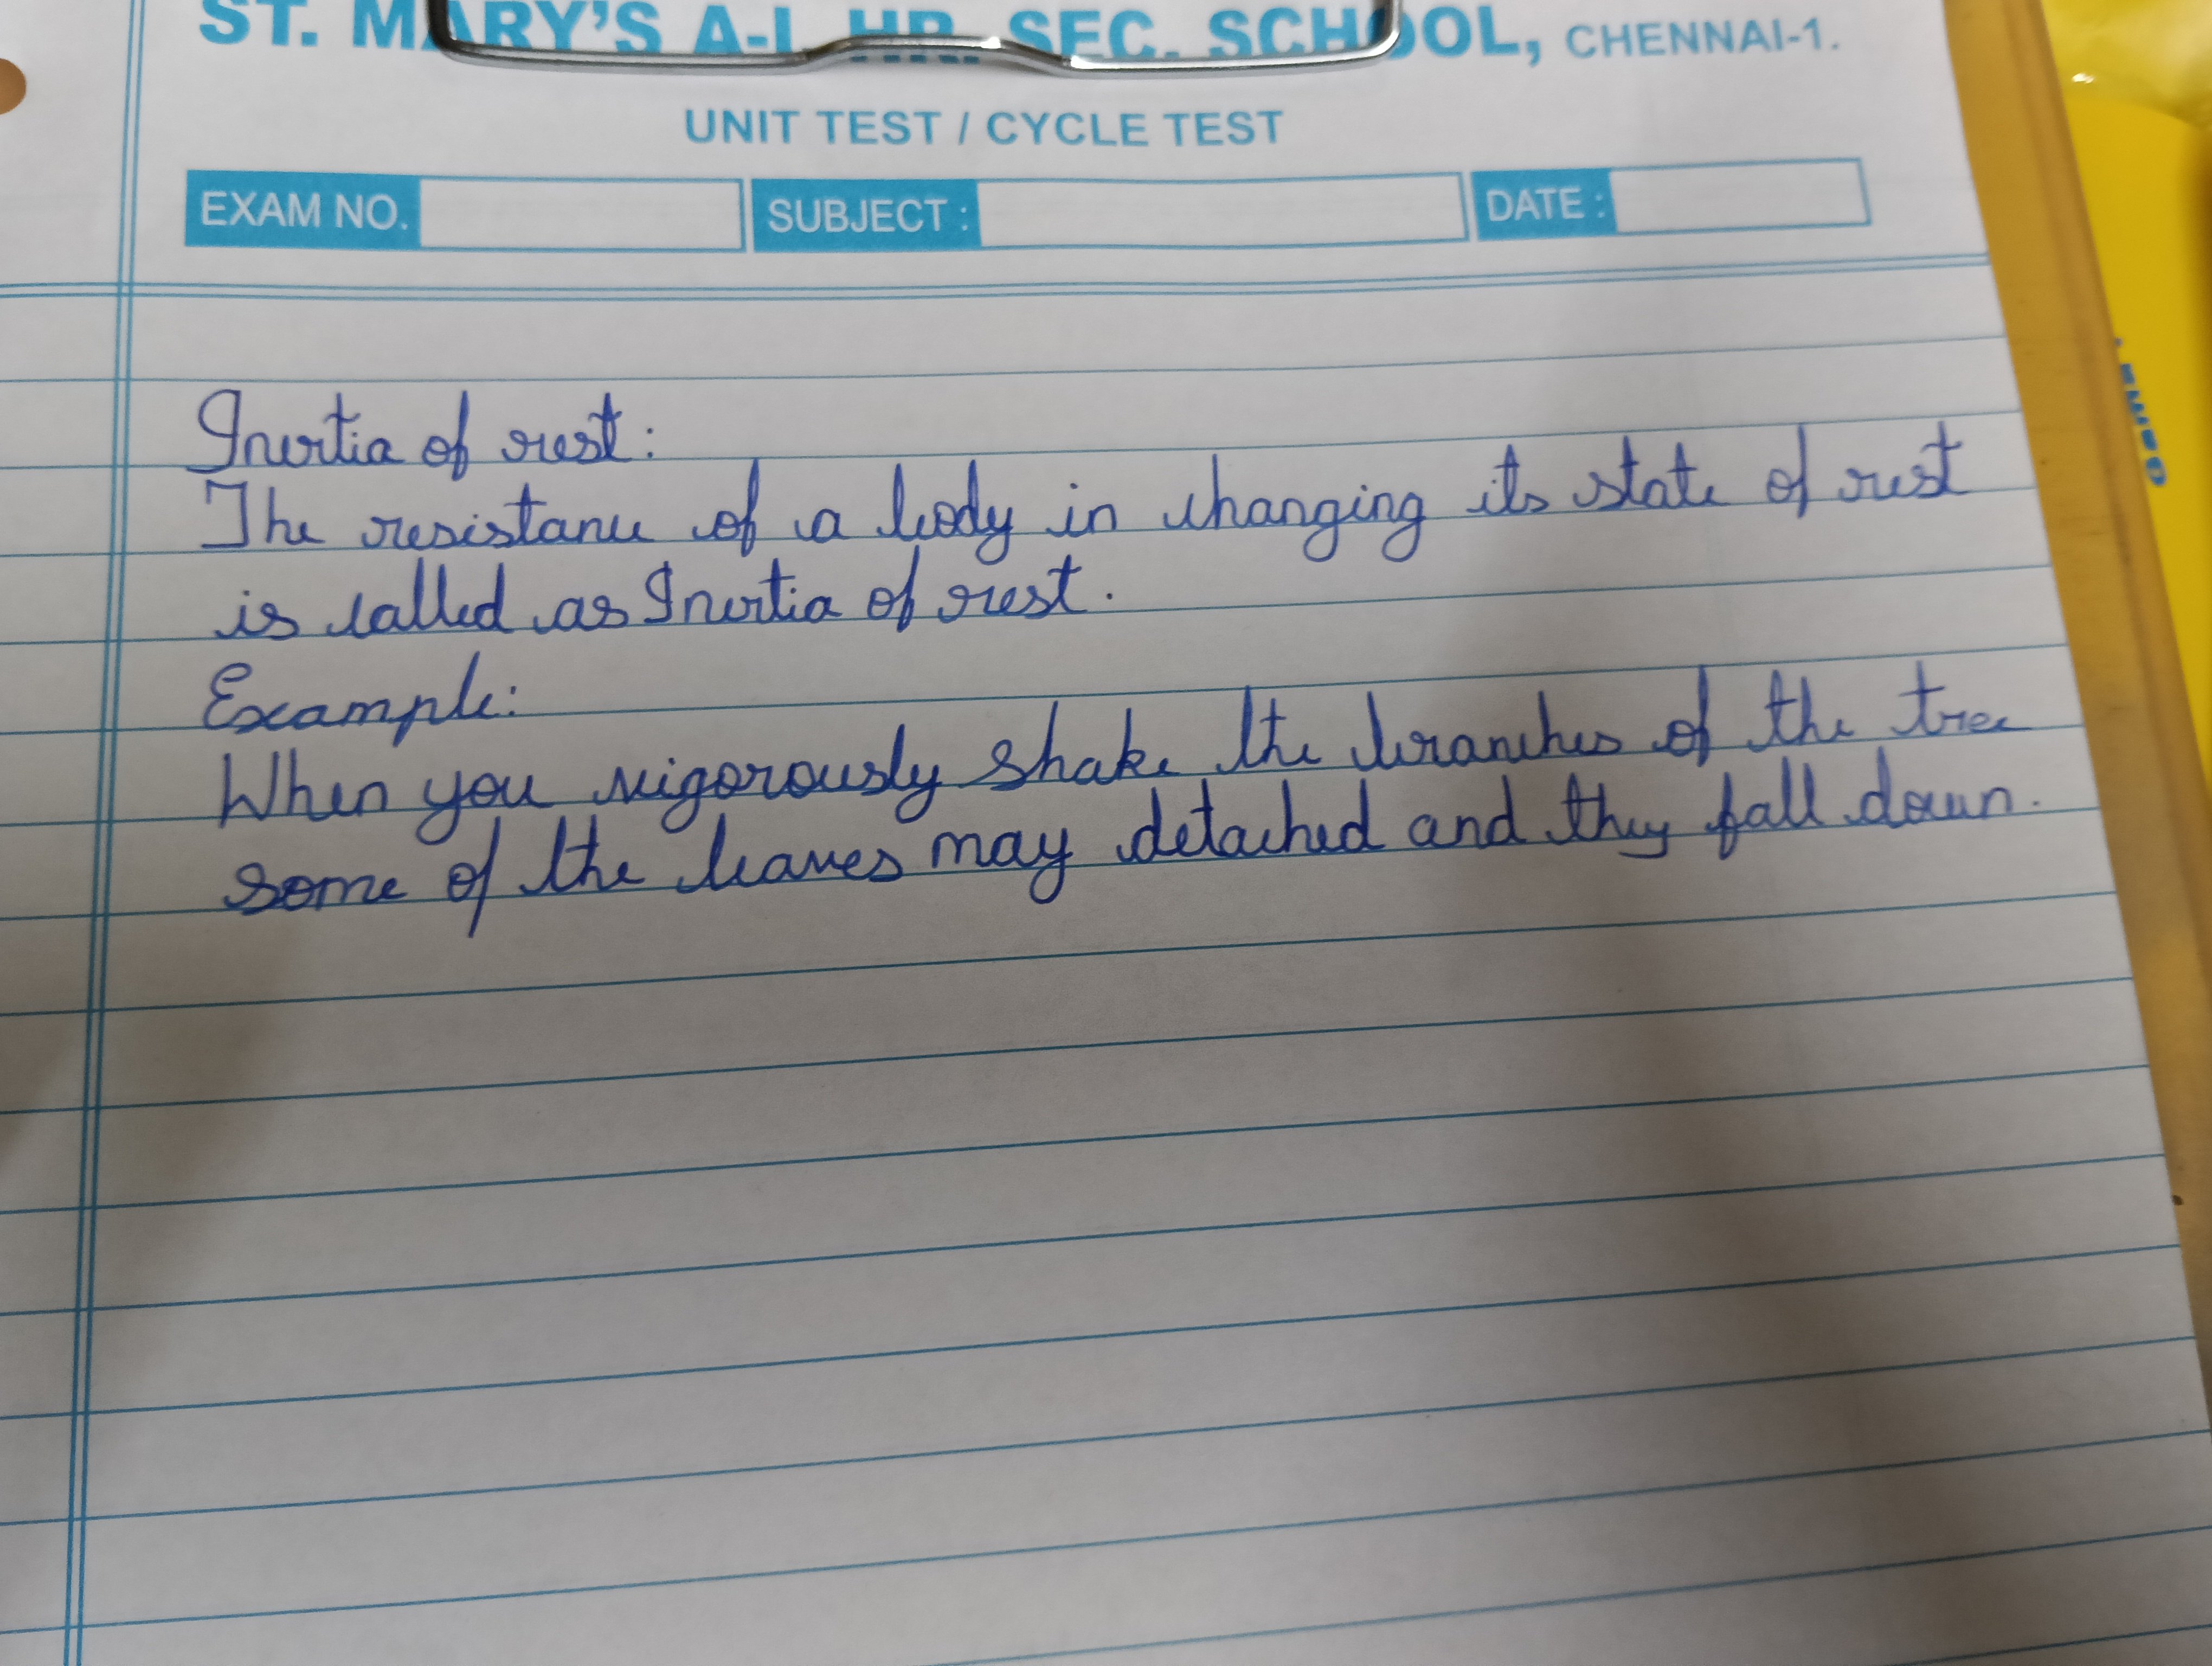 ST. MARY'S A-I. HR. SEC. SCHOOL, CHENNAI-1.
UNIT TEST / CYCLE TEST
EXAM NO. SUBJECT : DATE :
Inertia of rest:
The resistance of a body in changing its state of rest
is called as Inertia of rest.
Example:
When you vigorously shake the branches of the tree
some of the leaves may detached and they fall down.